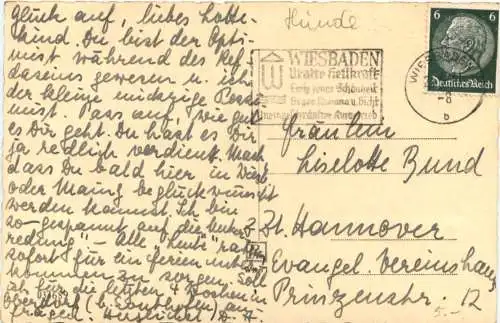 Glück auf, liebes Lotte-
kind. Du bist der Opti-
mist während des Ref-
daseins gewesen u. ich
der kleine mickrige Pessi-
mist. Pass auf, wie gut
es Dir geht. Du hast es Dir
ja redlich verdient. Mach
dass Du bald hier in Wiesb
oder Mainz beglückwünscht
werden kannst. Ich bin
so gespannt auf die
redung". - Alle "Leute" raten
sofort für ein Ferien
kommen zu sorgen. Soll
ich für die letzten 4 Wochen in
Oberdorf (b. Sonthofen) an-
fragen. Herzlichst D. H.
Hunde
WIESBADEN
Uralte Heilkraft
Ewig junge Schönheit
6
6
Deutsches Reich
WIESBADEN
-8
b
Fräulein
Liselotte Bund
z. Zt. Hannover
Evangel. Vereinshaus
Prinzenstr. 12
5.-